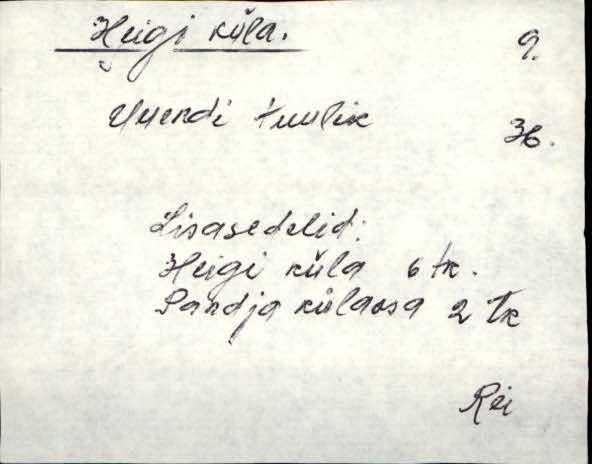 Heigi küla. 9.
Uuendi tuulik 36.
Lisasedelid:
Heigi küla 6 tk.
Pandja külaosa 2 tk
Rei